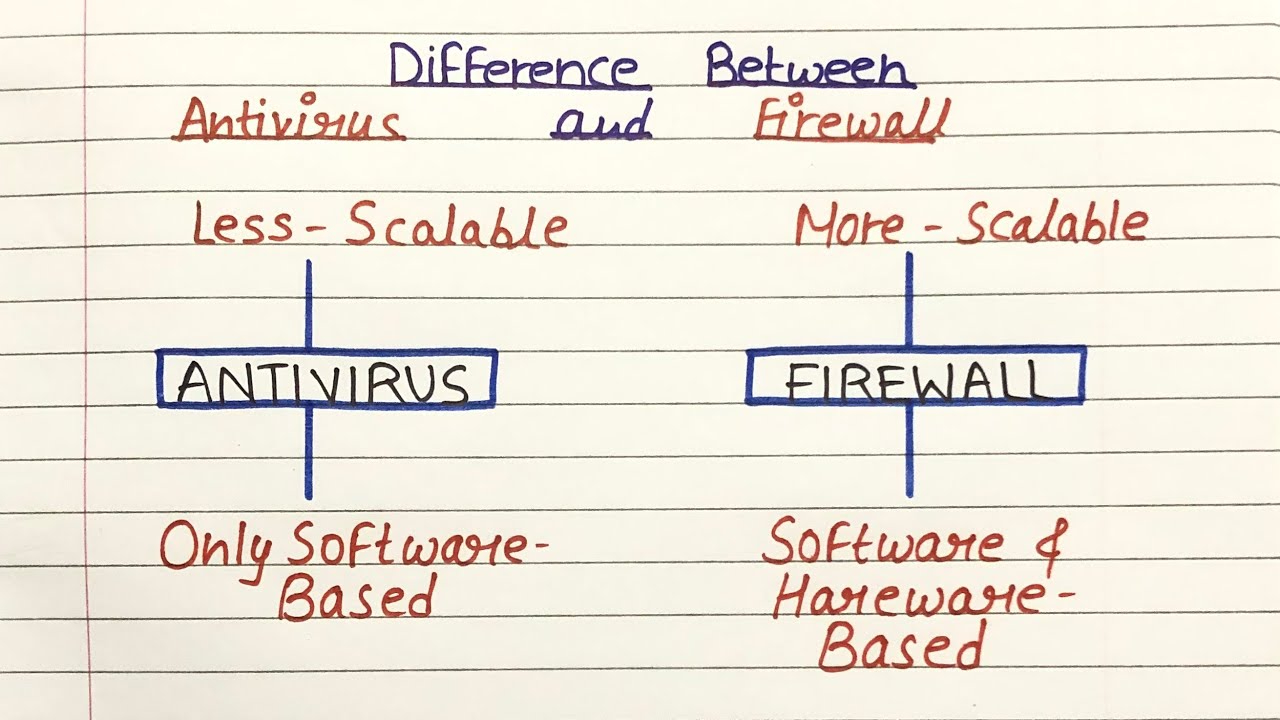 Difference Between
Antivirus and Firewall
Less - Scalable More - Scalable
ANTIVIRUS FIREWALL
Only Software- Software &
Based Hareware-
Based